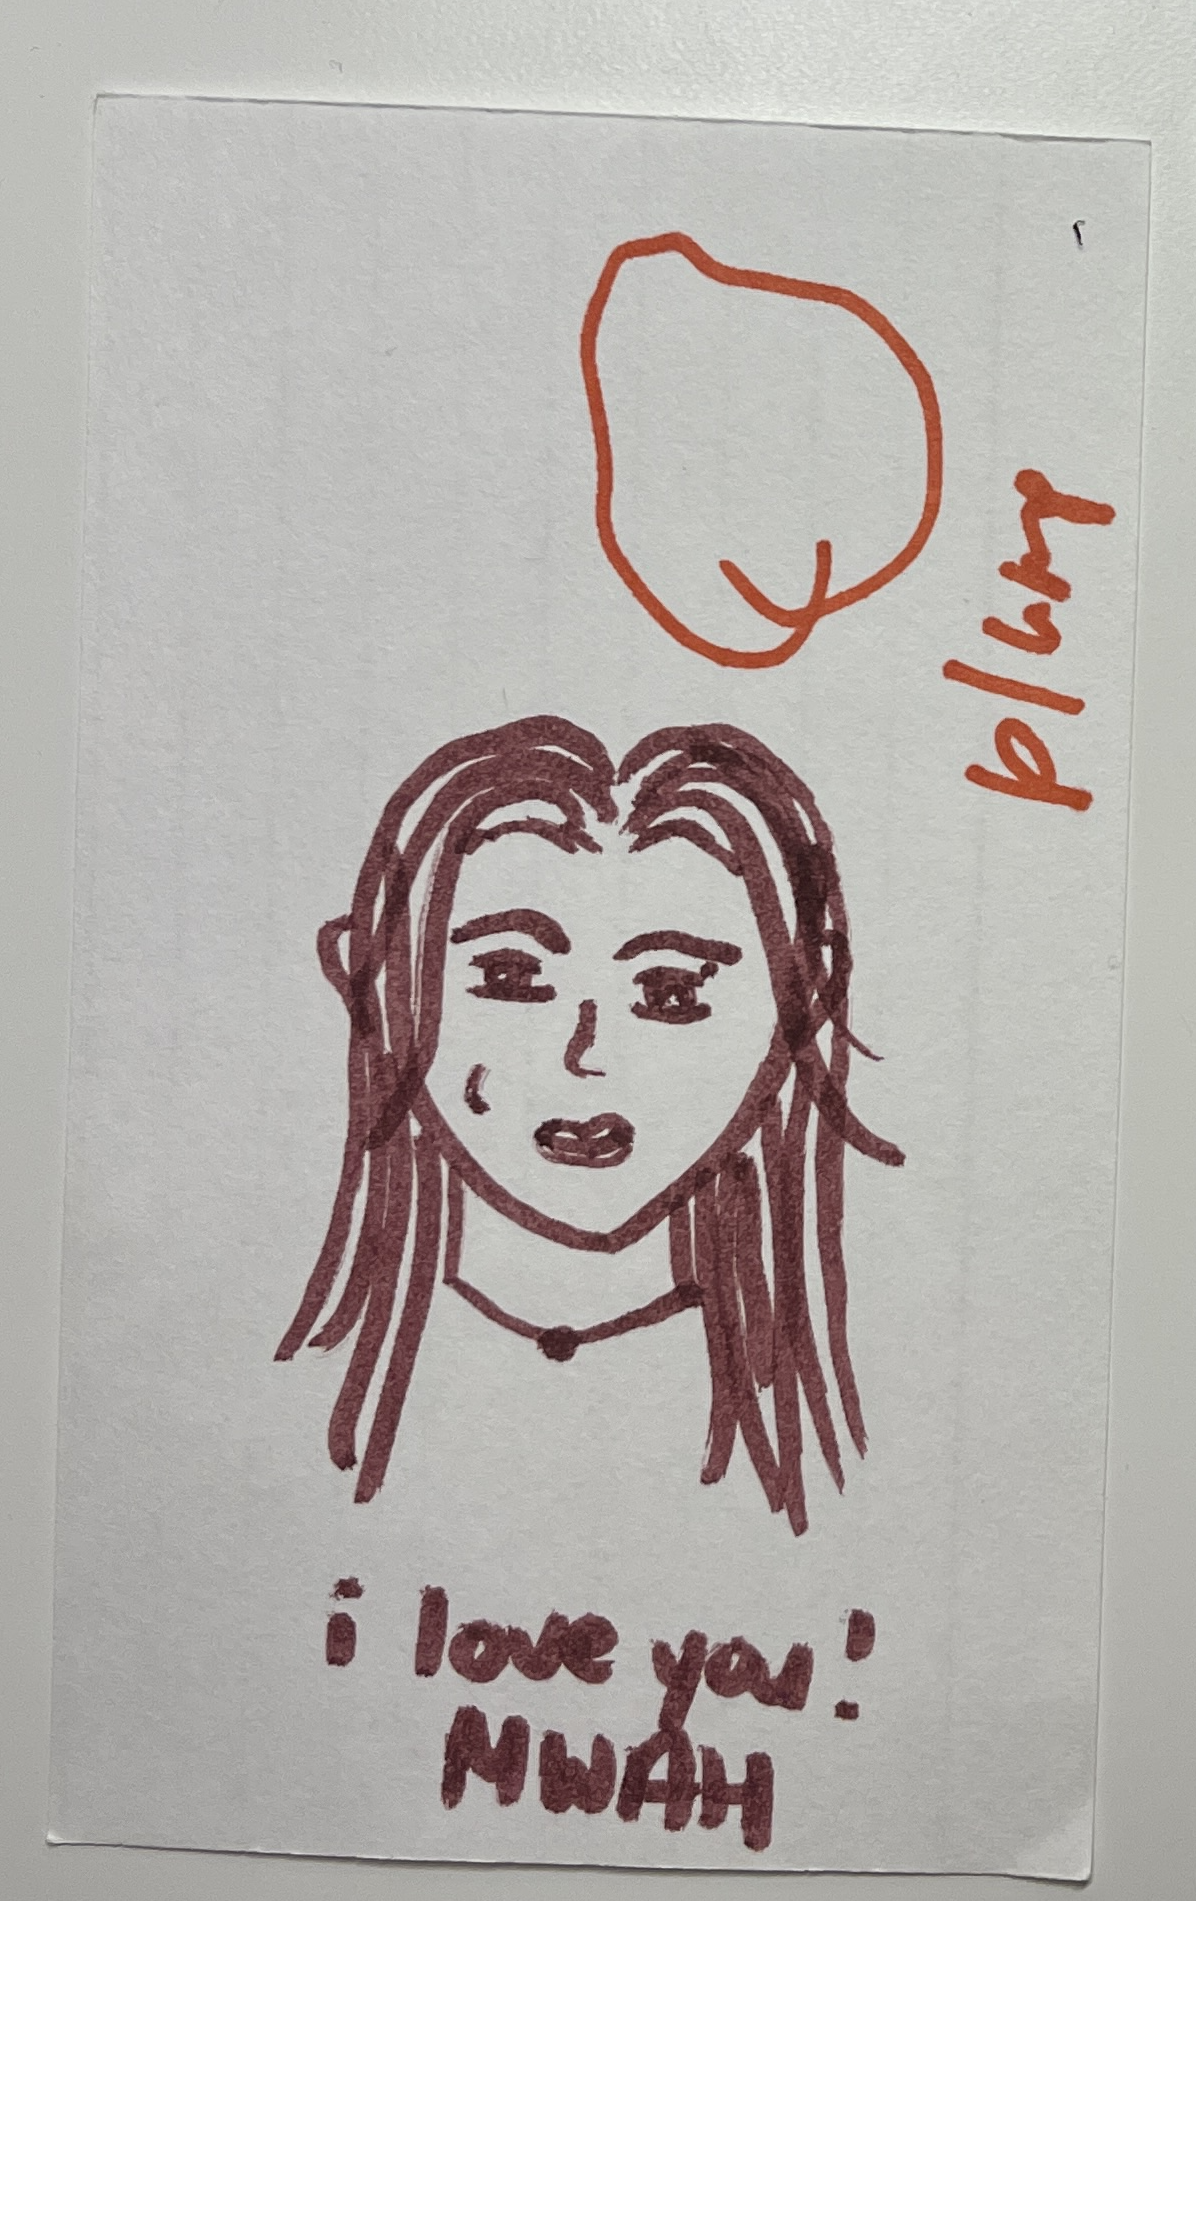 plum
i love you!
MWAH